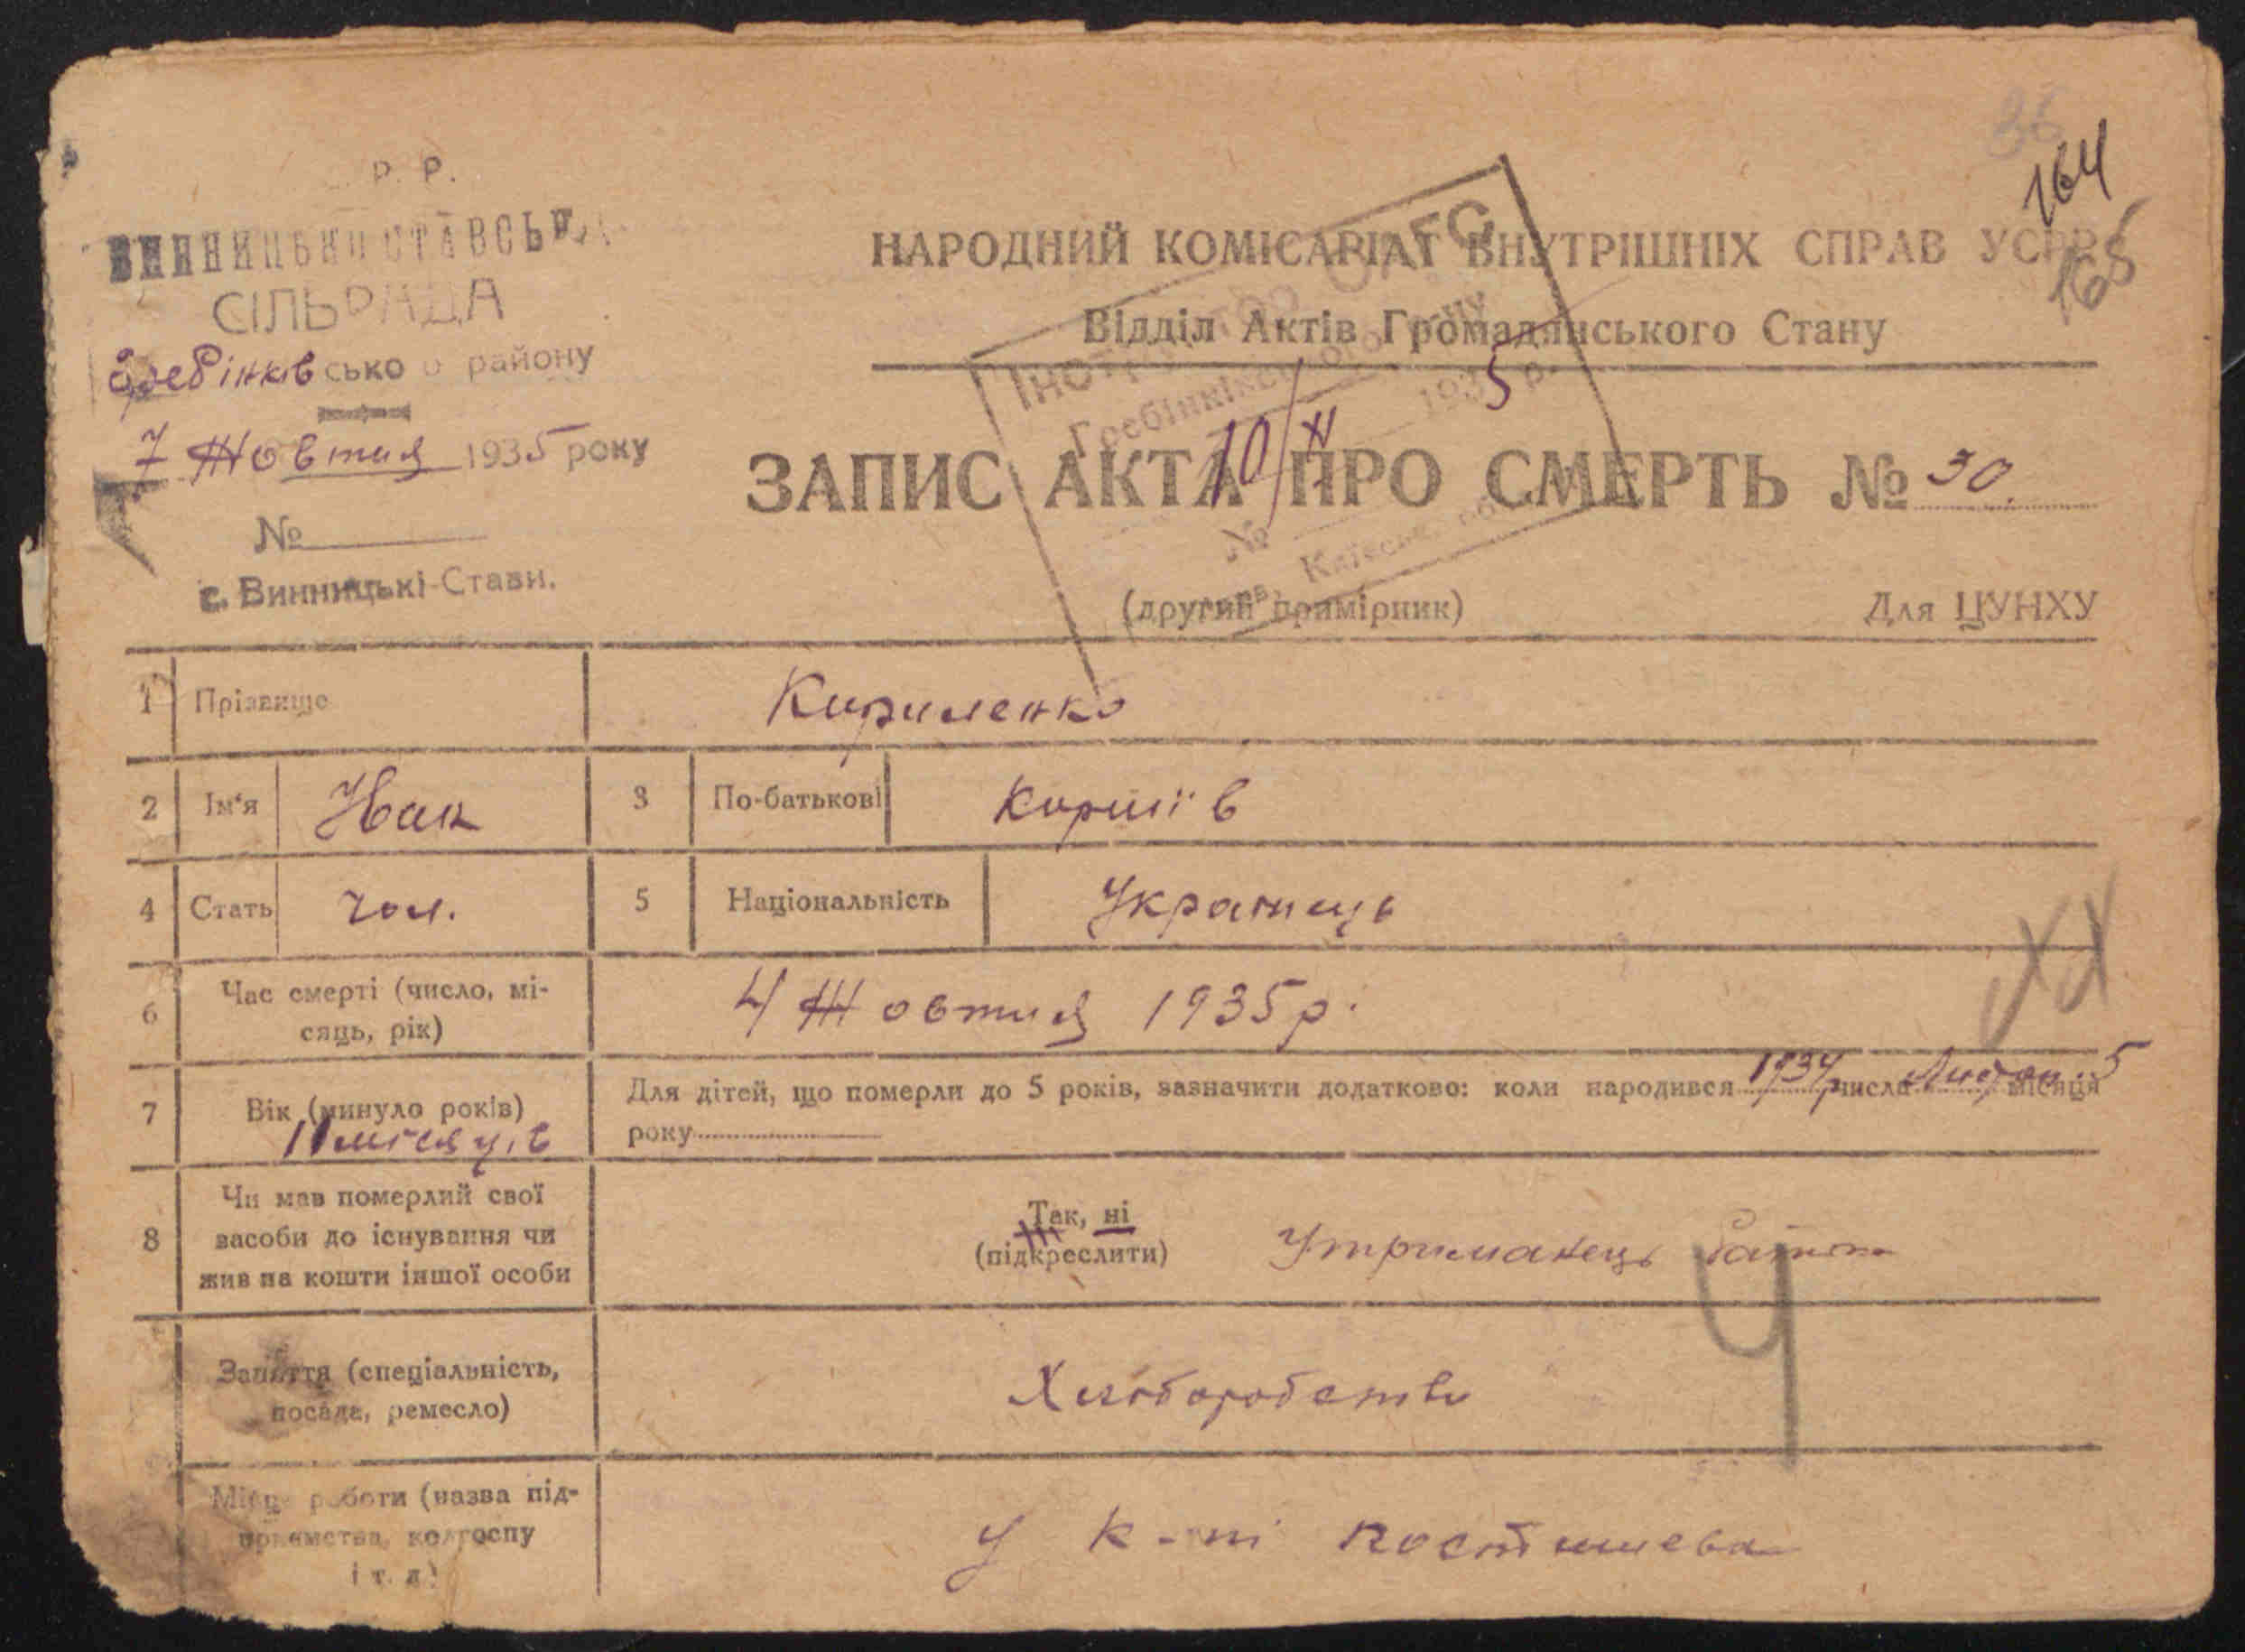 Р. Р.
ВИННИЦЬКО СТАВСЬКА
СІЛЬРАДА
Гребінківсько о району
7 Жовтня 1935 року
№
с. Винницькі-Стави.
164
165
НАРОДНИЙ КОМІСАРІАТ ВНУТРІШНІХ СПРАВ УСРР
Відділ Актів Громадянського Стану
Гребінківського р-ну
10/X 1935 р.
№
ЗАПИС АКТА ПРО СМЕРТЬ № 30.
(другий примірник)
Для ЦУНХУ
1 Прізвище Кириленко
2 Ім'я Іван 3 По-батькові
4 Стать чол. 5 Національність Українець
6 Час смерті (число, мі-
сяць, рік) 4 Жовтня 1935 р.
7 Вік (минуло років)
11 місяців
Для дітей, що померли до 5 років, зазначити додатково: коли народився 1934 р. числа Листоп. 5 місяця
року
8 Чи мав померлий свої
засоби до існування чи
жив на кошти іншої особи
Так, ні
(підкреслити)
Утриманець батька
Ч
Заняття (спеціальність,
посада, ремесло) Хліборобство
Місце роботи (назва під-
приємства, колгоспу
і т. д.) У к-пі Постишева